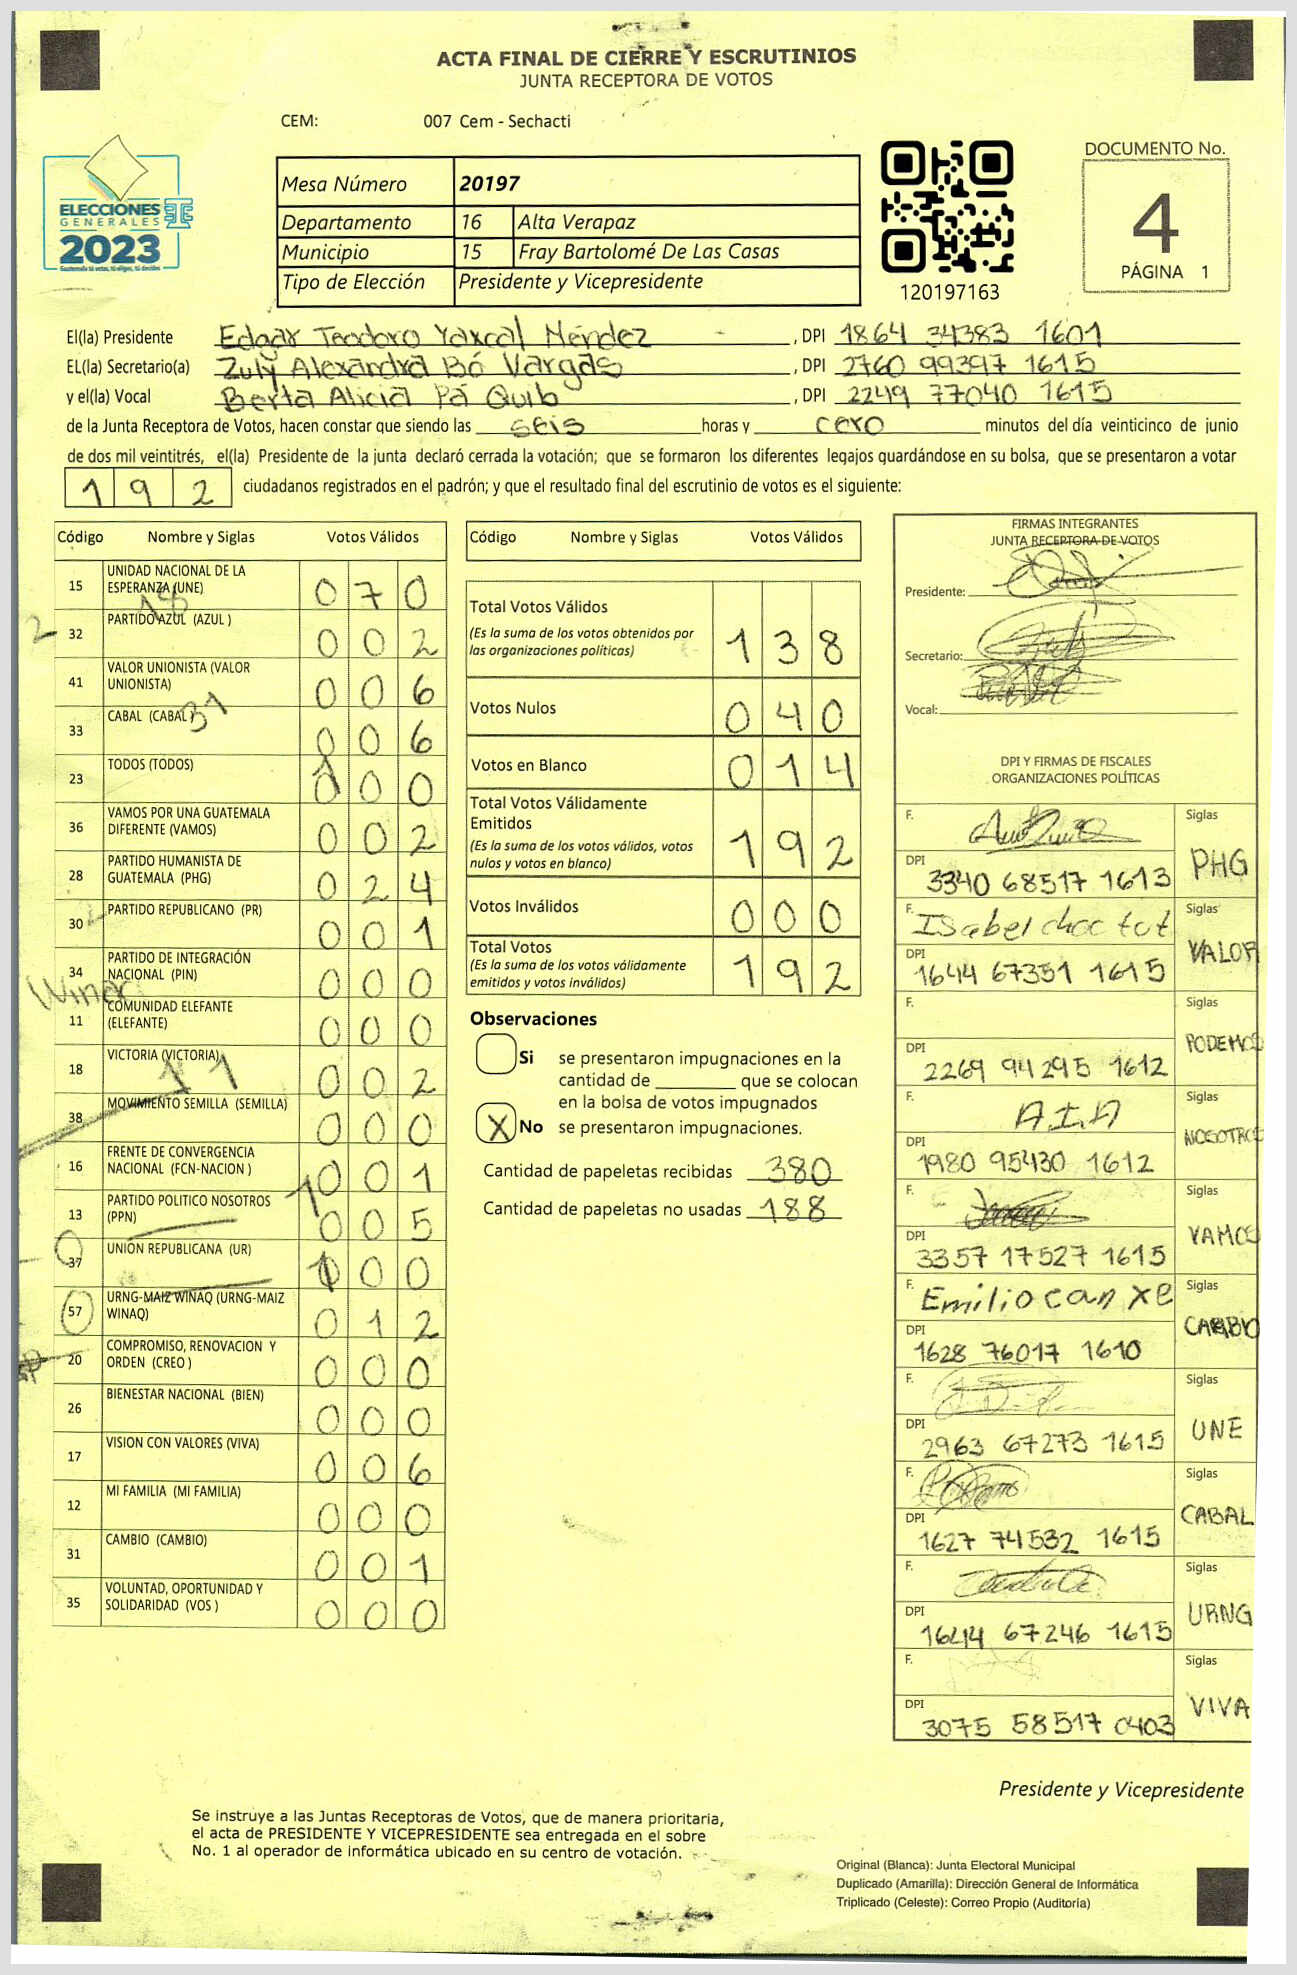 ACTA FINAL DE CIERRE Y ESCRUTINIOS
JUNTA RECEPTORA DE VOTOS
CEM: 007 Cem - Sechacti
ELECCIONES
GENERALES
2023
Guatemala tú votas, tú eliges, tú decides
Mesa Número 20197
Departamento 16 Alta Verapaz
Municipio 15 Fray Bartolomé De Las Casas
Tipo de Elección Presidente y Vicepresidente
120197163
DOCUMENTO No.
4
PÁGINA 1
El(la) Presidente Edgar Teodoro Yaxcal Méndez, DPI 1864 34383 1601
EL(la) Secretario(a) Zuly Alexandra Bó Vargas, DPI 2760 99397 1615
y el(la) Vocal Berta Alicia Pá Quib, DPI 2249 77040 1615
de la Junta Receptora de Votos, hacen constar que siendo las seis horas y cero minutos del día veinticinco de junio
de dos mil veintitrés, el(la) Presidente de la junta declaró cerrada la votación; que se formaron los diferentes legajos guardándose en su bolsa, que se presentaron a votar
192 ciudadanos registrados en el padrón; y que el resultado final del escrutinio de votos es el siguiente:
Código Nombre y Siglas Votos Válidos
15 UNIDAD NACIONAL DE LA ESPERANZA (UNE) 070
18
2
32 PARTIDO AZUL (AZUL ) 002
41 VALOR UNIONISTA (VALOR UNIONISTA) 006
31
33 CABAL (CABAL) 006
23 TODOS (TODOS) 000
36 VAMOS POR UNA GUATEMALA DIFERENTE (VAMOS) 002
28 PARTIDO HUMANISTA DE GUATEMALA (PHG) 024
30 PARTIDO REPUBLICANO (PR) 001
34 PARTIDO DE INTEGRACIÓN NACIONAL (PIN) 000
Winaq
11 COMUNIDAD ELEFANTE (ELEFANTE) 000
18 VICTORIA (VICTORIA) 002
11
38 MOVIMIENTO SEMILLA (SEMILLA) 000
16 FRENTE DE CONVERGENCIA NACIONAL (FCN-NACION ) 001
13 PARTIDO POLITICO NOSOTROS (PPN) 005
37 UNION REPUBLICANA (UR) 000
57 URNG-MAIZ WINAQ (URNG-MAIZ WINAQ) 012
20 COMPROMISO, RENOVACION Y ORDEN (CREO ) 000
26 BIENESTAR NACIONAL (BIEN) 000
17 VISION CON VALORES (VIVA) 006
12 MI FAMILIA (MI FAMILIA) 000
31 CAMBIO (CAMBIO) 001
35 VOLUNTAD, OPORTUNIDAD Y SOLIDARIDAD (VOS ) 000
Código Nombre y Siglas Votos Válidos
Total Votos Válidos 138
(Es la suma de los votos obtenidos por
las organizaciones políticas)
Votos Nulos 040
Votos en Blanco 014
Total Votos Válidamente
Emitidos 192
(Es la suma de los votos válidos, votos
nulos y votos en blanco)
Votos Inválidos 000
Total Votos 192
(Es la suma de los votos válidamente
emitidos y votos inválidos)
Observaciones
Si se presentaron impugnaciones en la
cantidad de ________ que se colocan
en la bolsa de votos impugnados
X No se presentaron impugnaciones.
Cantidad de papeletas recibidas 380
Cantidad de papeletas no usadas 188
FIRMAS INTEGRANTES
JUNTA RECEPTORA DE VOTOS
Presidente:
Secretario:
Vocal:
DPI Y FIRMAS DE FISCALES
ORGANIZACIONES POLÍTICAS
F. Siglas
DPI 3340 68517 1613 PHG
F. Isabel choc tut Siglas
DPI 1644 67351 1615 VALOR
F. Siglas
DPI 2269 94295 1612 PODEMOS
F. A.I.A Siglas
DPI 1980 95430 1612 NOSOTROS
F. Siglas
DPI 3357 17527 1615 VAMOS
F. Emilio can xe Siglas
DPI 1628 76017 1610 CAMBIO
F. Siglas
DPI 2963 67273 1615 UNE
F. Siglas
DPI 1627 74532 1615 CABAL
F. Siglas
DPI 1644 67246 1615 URNG
F. Siglas
DPI 3075 58517 0403 VIVA
Presidente y Vicepresidente
Se instruye a las Juntas Receptoras de Votos, que de manera prioritaria,
el acta de PRESIDENTE Y VICEPRESIDENTE sea entregada en el sobre
No. 1 al operador de informática ubicado en su centro de votación.
Original (Blanca): Junta Electoral Municipal
Duplicado (Amarilla): Dirección General de Informática
Triplicado (Celeste): Correo Propio (Auditoría)